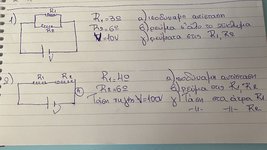 1) R₁ R₂ R₁=3Ω α) ισοδύναμη αντίσταση
R₂=6Ω β) ρεύμα σ' όλο το κύκλωμα
V=100V γ) ρεύματα στις R₁, R₂
2) R₁ R₂ R₁=4Ω α) ισοδύναμη αντίσταση
R₂=6Ω β) ρεύμα στις R₁, R₂
Τάση πηγής V=100V γ) Τάση στα άκρα R₁
-||- -||- R₂